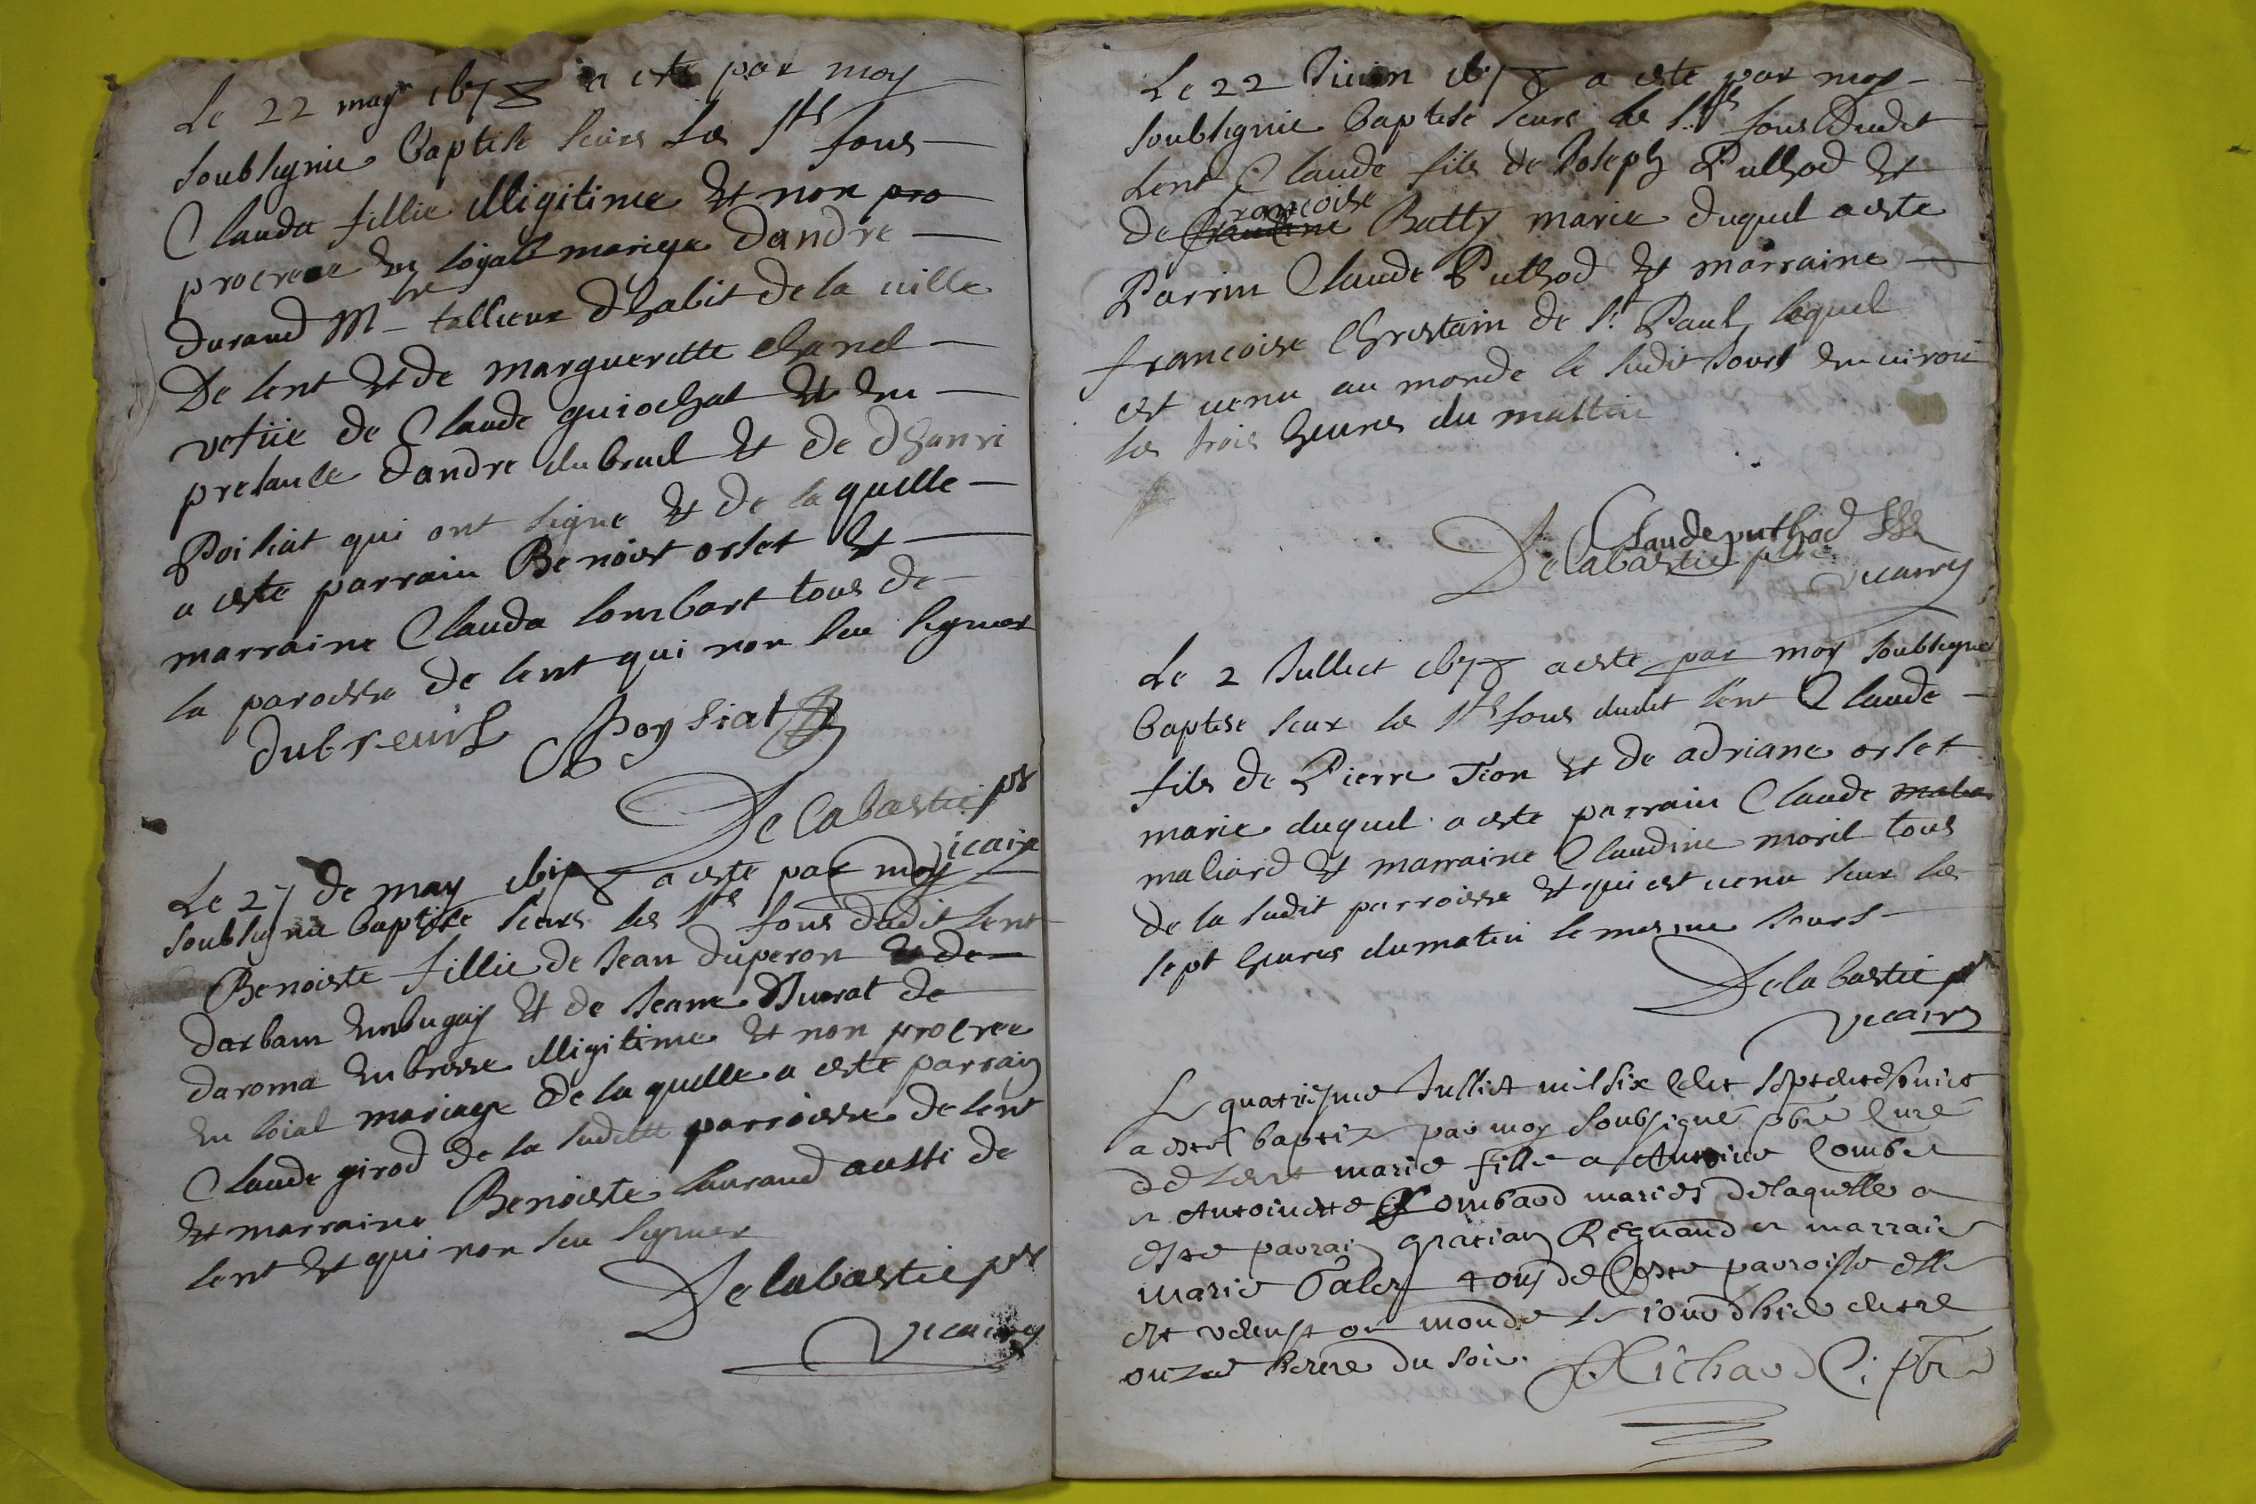 Le 22 may 1678 a este par moy
soubsignie baptise seurs les Sts fons
Clauda fillie illigitime et non pro
procreee en loyalt mariage dandre
durand Mtre tallieur dhabit de la ville
De lent et de marguerette chanel
vefüe de Claude guiochat et en
presance dandre dubreul et de dhanri
Poisiat qui ont signe et de la quelle
a este parrain Benoist orset et
marraine Clauda lombart tous de
la paroesse de lent qui non seu signer
dubreuil Poysiat
De la bastie ptr
vicaire
Le 27 de may 1678 a este par moy
soubsignie baptise seurs les Sts fons dudit lent
Benoiste fillie de Jean duperon et de
darbain enbugay et de Jeane Duerat de
daroma enbresse illigitime et non procree
en loial mariage de la quelle a este parrain
Claude girod de la suditte parroisse de lent
et marraine Benoiste laurand aussi de
lent et qui non seu signer
De labastie ptr
vicaire
Le 22 Juin 1678 a este par moy
soubsignie baptise seurs les Sts fons dudit
Lent Claude fils de Joseph Puthod et
de francoise Batty marie duquel a este
Parrin Claude Puthod et marraine
francoise Chrestain de St Paul, lequel
est venu au monde le sudit Jourt enuiron
les trois heures du mattin
Claude puthod
De la bastie ptre
vicaire
Le 2 Jullect 1678 a este par moy soubsigne
baptise seur les Sts fons dudit lent Claude
fils de Pierre Tion et de adriane orset
marie duquel a este parrain Claude malia
maliard et marraine Claudine moril tous
de la sudit parroisse et qui est venu seur les
sept heures dumatin le mesme Jourt
De la bastie ptr
vicaire
Le quatriesme Julliet mil six cent septente huict
a esté baptize par moy soubsigné pbre curé
de Lent marie fille a Antoine Combet
et Antoinette Gombaud mariés delaquelle a
esté parrain gratian Regnaud et marraine
marie tous de Cette parroisse elle
est venust au monde le iour dhier entre
onze heure du soir. Richard C. pbre